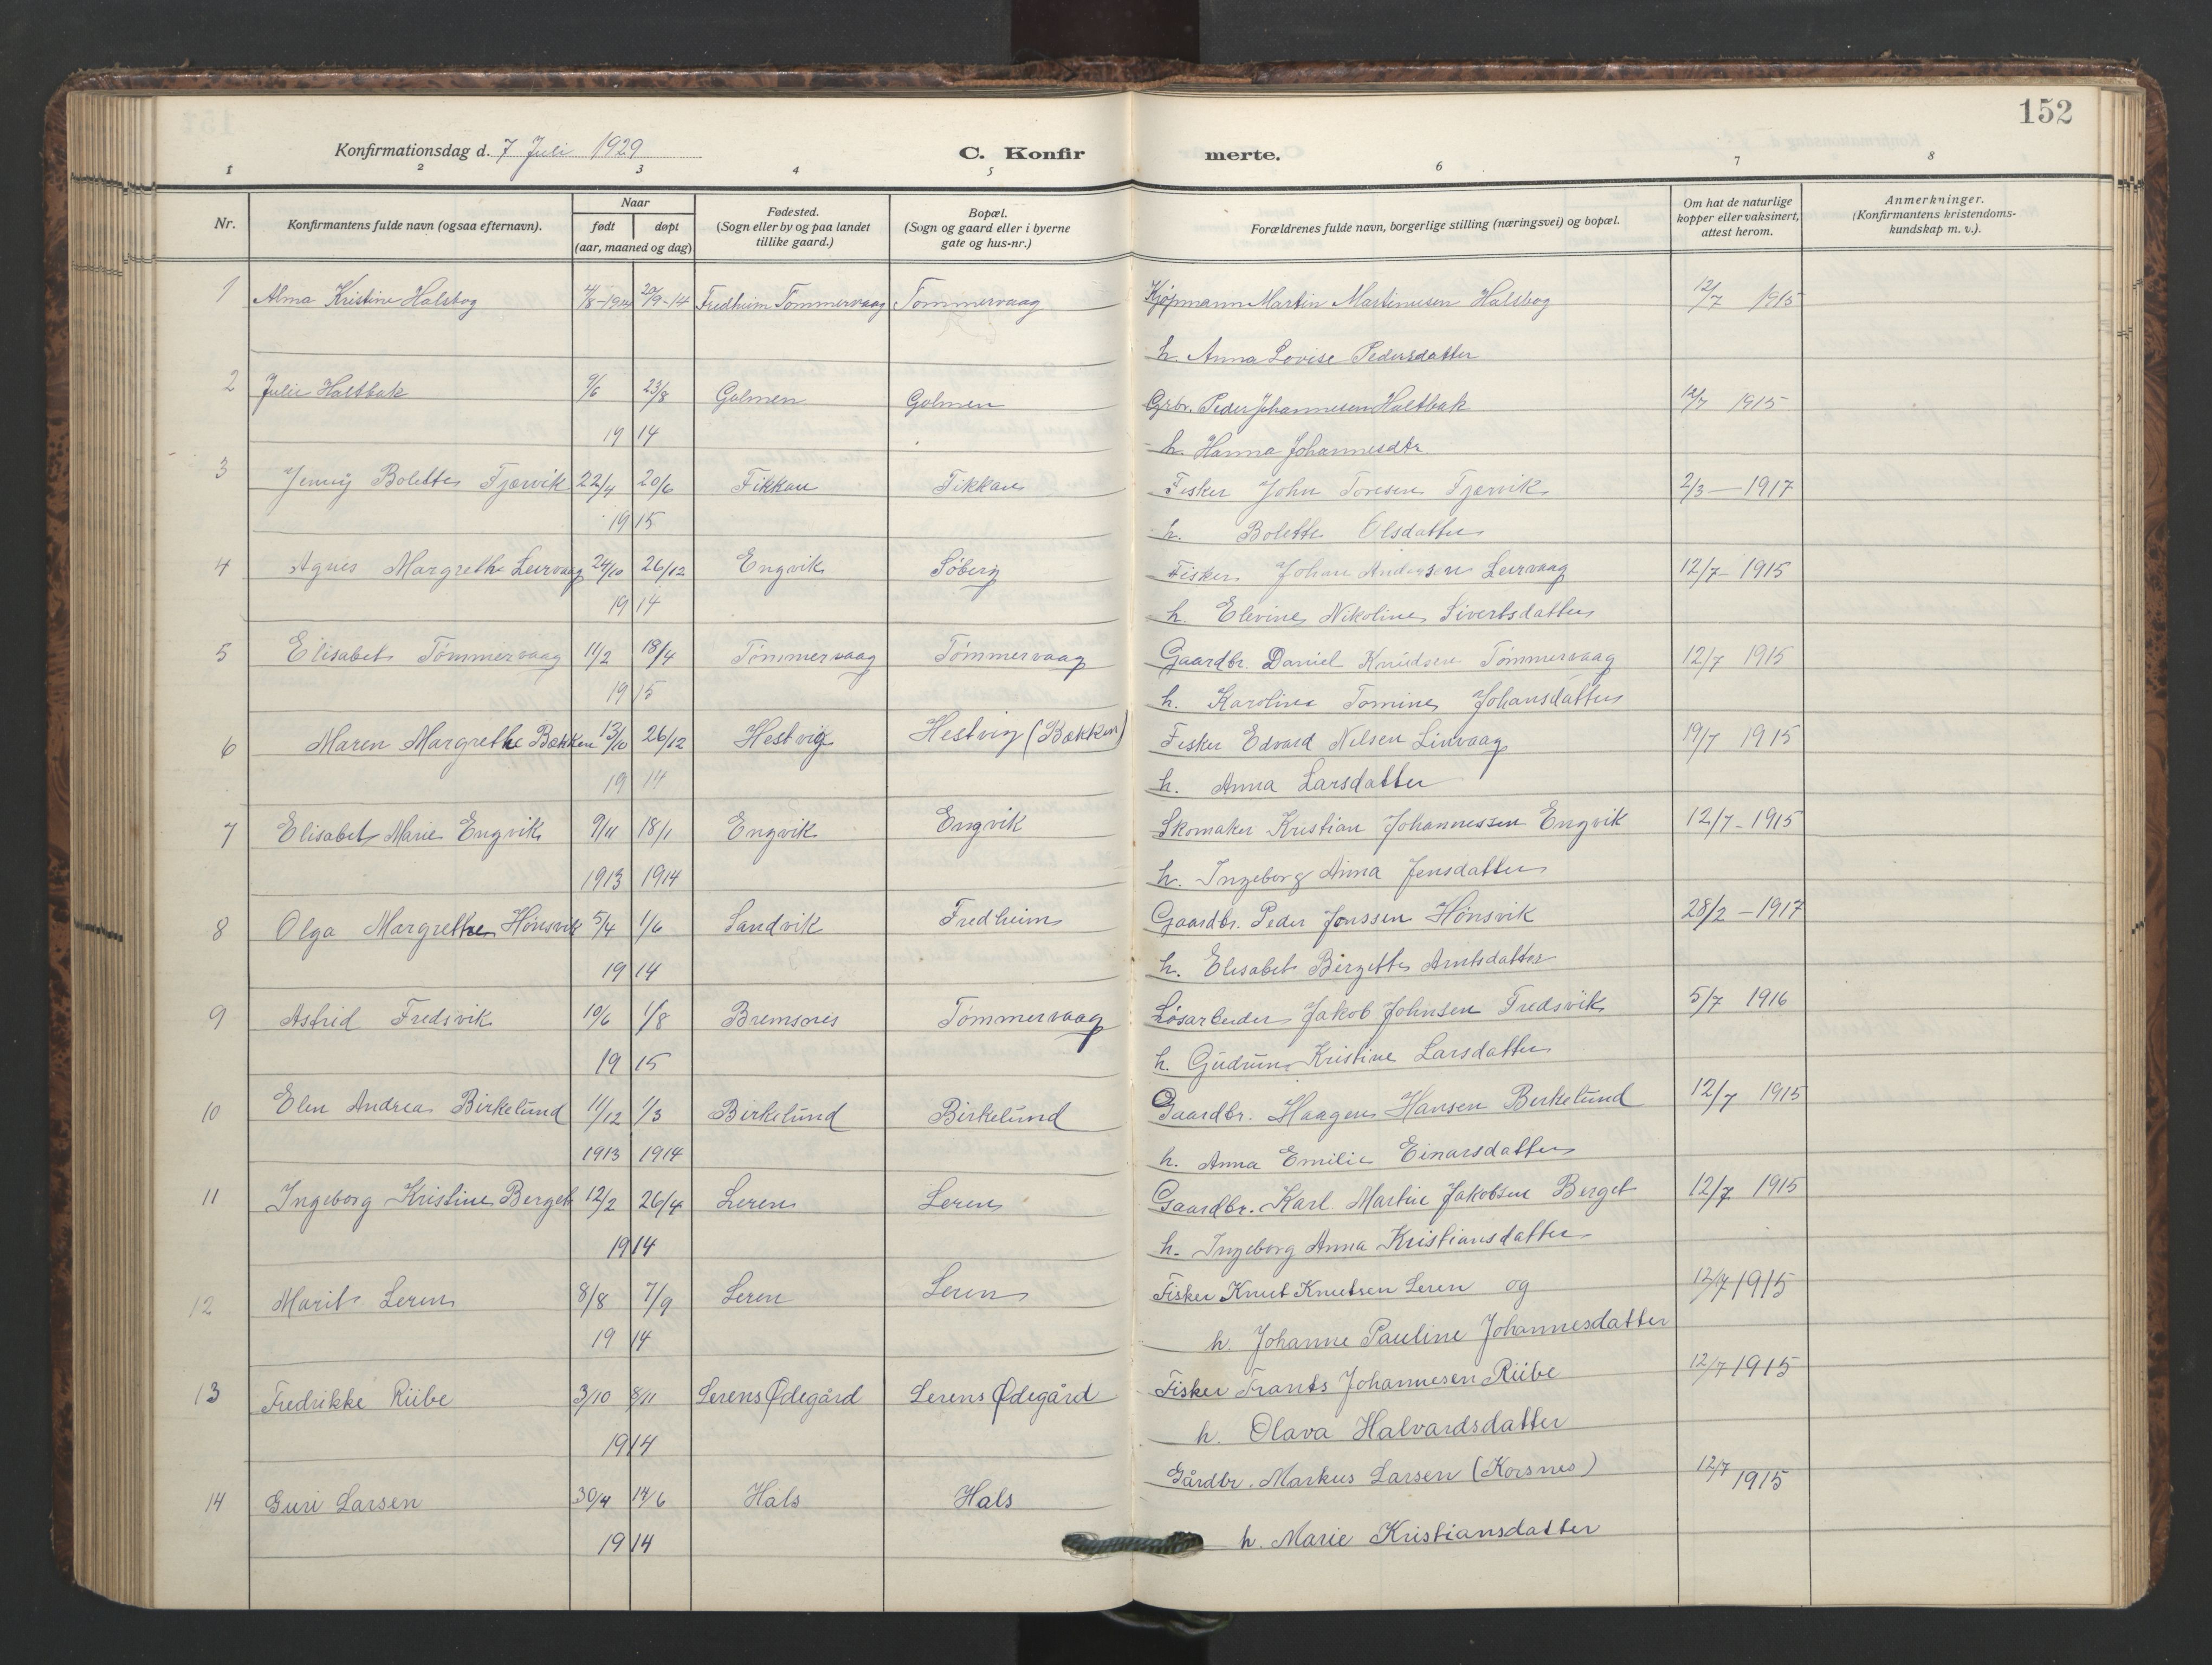 152
Konfirmationsdag d. 7 Juli 1929
C. Konfir merte.
1 2 3 4 5 6 7 8
Nr.
Konfirmantens fulde navn (ogsaa efternavn).
Naar
født døpt
(aar, maaned og dag)
Fødested.
(Sogn eller by og paa landet
tillike gaard.)
Bopæl.
(Sogn og gaard eller i byerne
gate og hus-nr.)
Forældrenes fulde navn, borgerlige stilling (næringsvei) og bopæl.
Om hat de naturlige
kopper eller vaksinert,
attest herom.
Anmerkninger.
(Konfirmantens kristendoms-
kundskap m. v.).
1 Alma Kristine Halsbog 4/8-1914 20/9-14 Fredheim Tømmervaag Tømmervaag Kjøpmann Martin Martinusen Halsbog 12/7 1915
h. Anna Lovise Pedersdatter
2 Julie Haltbak 9/6 23/8 Golmen Golmen Grbr. Peder Johannesen Haltbak 12/7 1915
19 14 h. Hanna Johannesdtr.
3 Jenny Bolette Tjærvik 22/4 20/6 Fikkan Fikkan Fisker John Toresen Tjærvik 2/3 — 1917
19 15 h. Bolette Olsdatter
4 Agnes Margrethe Leirvaag 24/10 26/12 Engvik Søberg Fisker Johan Andersen Leirvaag 12/7 - 1915
19 14 h. Elevine Nikoline Sivertsdatter
5 Elisabet Tømmervaag 11/2 18/4 Tømmervaag Tømmervaag Gaardbr. Daniel Knudsen Tømmervaag 12/7 1915
19 15 h. Karoline Tomine Johansdatter
6 Maren Margrethe Bækken 13/10 26/12 Hestvig Hestvig (Bækken) Fisker Edvard Nilsen Linvaag 19/7 1915
19 14 h. Anna Larsdatter
7 Elisabet Marie Engvik 9/11 18/1 Engvik Engvik Skomaker Kristian Johannessen Engvik 12/7 - 1915
1913 1914 h. Ingeborg Anna Jensdatter
8 Olga Margrethe Hønsvik 5/4 1/6 Sandvik Fredheim Gaardbr. Peder Jonssen Hønsvik 28/2 - 1917
19 14 h. Elisabet Birgette Arntsdatter
9 Astrid Fredsvik 10/6 1/8 Bremsnes Tømmervaag Løsarbeider Jakob Johnsen Fredsvik 5/7 1916
19 15 h. Gudrun Kristine Larsdatter
10 Elen Andrea Birkelund 11/12 1/3 Birkelund Birkelund Gaardbr. Haagen Hansen Birkelund 12/7 1915
1913 1914 h. Anna Emilie Einarsdatter
11 Ingeborg Kristine Berget 12/2 26/4 Leren Leren Gaardbr. Karl Martin Jakobsen Berget 12/7 1915
1914 h. Ingeborg Anna Kristiansdatter
12 Marit Leren 8/8 7/9 Leren Leren Fisker Knut Knutsen Leren og 12/7 1915
19 14 h. Johanne Pauline Johannesdatter
13 Fredrikke Rübe 3/10 8/11 Lerens Ødegård Lerens Ødegård Fisker Frants Johannesen Rübe 12/7 1915
1914 h. Olava Halvardsdatter
14 Guri Larsen 30/4 14/6 Hals Hals Gårdbr. Markus Larsen (Korsnes) 12/7 1915
19 14 h. Marie Kristiansdatter